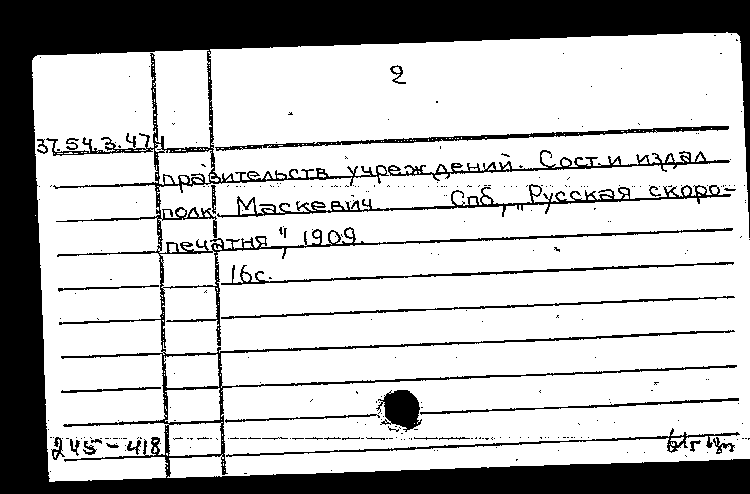 2
37.54.3.474
правительств учреждений. Сост. и издал
полк. Маскевич Спб, „Русская скоро-
печатня", 1909.
16с.
245-418